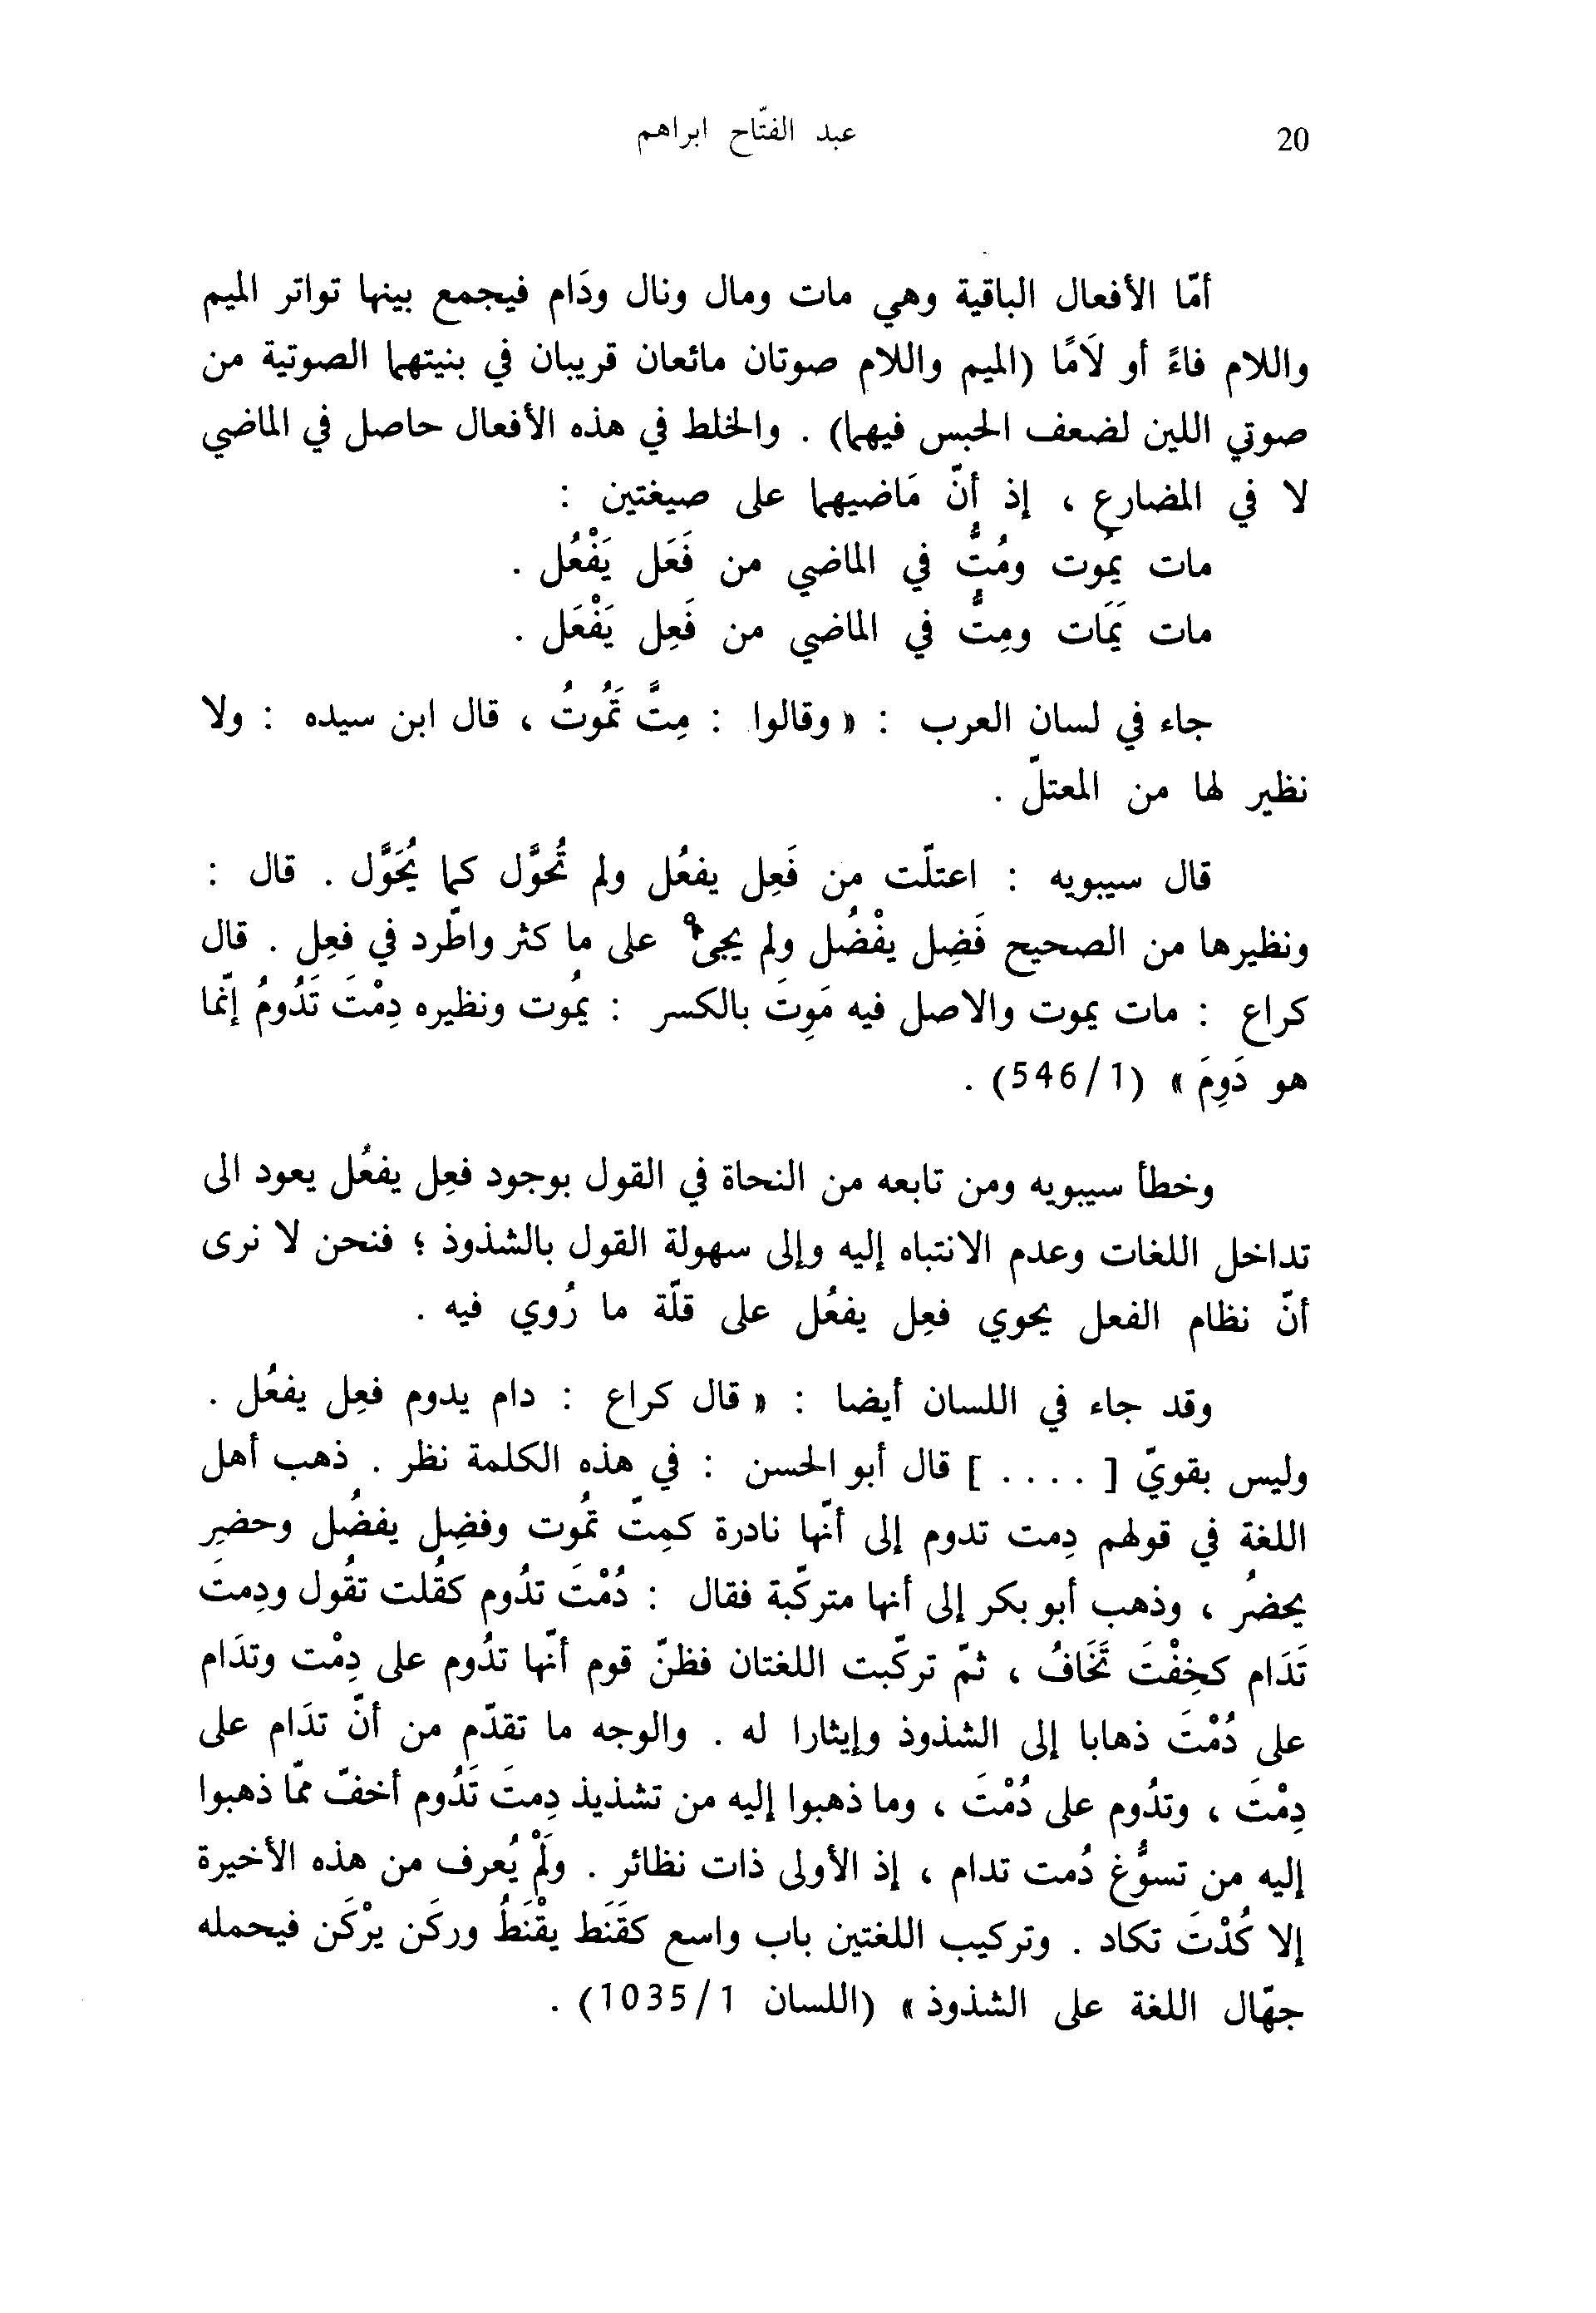 20
عبد الفتّاح ابراهم
أمّا الأفعال الباقية وهي مات ومال ونال ودَام فيجمع بينها تواتر الميم
واللام فاءً أو لَامًا (الميم واللام صوتان مائعان قريبان في بنيتهما الصوتية من
صوتي اللين لضعف الحبس فيهما) . والخلط في هذه الأفعال حاصل في الماضي
لا في المضارع ، إذ أنّ مَاضيهما على صيغتين :
مات يمُوت ومُتُّ في الماضي من فَعَل يَفْعُل .
مات يَمَات ومِتُّ في الماضي من فَعِل يَفْعَل .
جاء في لسان العرب : « وقالوا : مِتَّ تَمُوتُ ، قال ابن سيده : ولا
نظير لها من المعتلّ .
قال سيبويه : اعتلّت من فَعِل يفعُل ولم تُحوَّل كما يُحَوَّل . قال :
ونظيرها من الصحيح فَضِل يفْضُل ولم يجىْء على ما كثر واطّرد في فعِل . قال
كراع : مات يموت والاصل فيه مَوِتَ بالكسر : يمُوت ونظيره دِمْتَ تَدُومُ إنّما
هو دَوِمَ » (546/1) .
وخطأ سيبويه ومن تابعه من النحاة في القول بوجود فعِل يفعُل يعود الى
تداخل اللغات وعدم الانتباه إليه وإلى سهولة القول بالشذوذ ؛ فنحن لا نرى
أنّ نظام الفعل يحوي فعِل يفعُل على قلّة ما رُوي فيه .
وقد جاء في اللسان أيضا : « قال كراع : دام يدوم فعِل يفعُل .
وليس بقويّ [ . . . . ] قال أبو الحسن : في هذه الكلمة نظر . ذهب أهل
اللغة في قولهم دِمت تدوم إلى أنّها نادرة كمِتّ تمُوت وفضِل يفضُل وحضِر
يحضُر ، وذهب أبو بكر إلى أنها متركّبة فقال : دُمْتَ تدُوم كقُلت تقُول ودِمتَ
تَدَام كخِفْتَ تَخَافُ ، ثمّ تركّبت اللغتان فظنّ قوم أنّها تدُوم على دِمْت وتدَام
على دُمْتَ ذهابا إلى الشذوذ وإيثارا له . والوجه ما تقدّم من أنّ تدَام على
دِمْتَ ، وتدُوم على دُمْتَ ، وما ذهبوا إليه من تشذيذ دِمتَ تَدُوم أخفّ ممّا ذهبوا
إليه من تسوُّغ دُمت تدام ، إذ الأولى ذات نظائر . ولَمْ يُعرف من هذه الأخيرة
إلا كُدْتَ تكاد . وتركيب اللغتين باب واسع كقَنَط يقْنَطُ وركَن يرْكَن فيحمله
جهّال اللغة على الشذوذ » (اللسان 1035/1) .